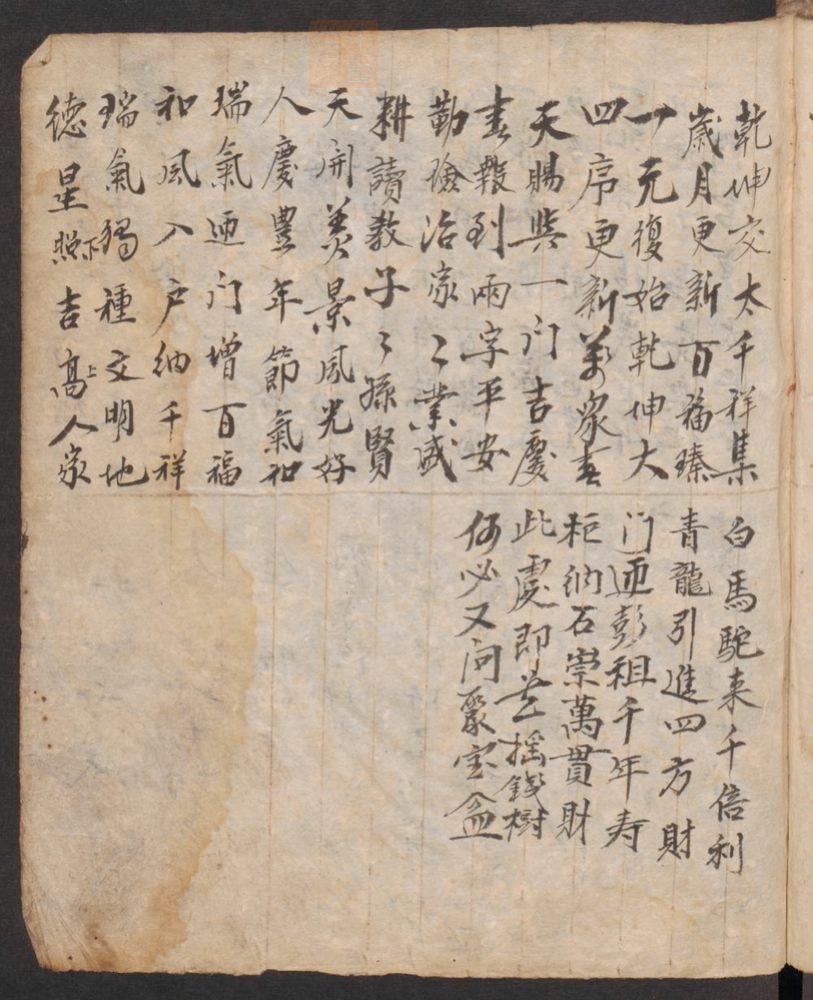 乾坤交太千祥集
歲月更新百福臻
一元復始乾坤大
四序更新萬象春
天賜與一门吉慶
春報到兩字平安
勤儉治家〻業盛
耕讀教子〻孫賢
天開美景風光好
人慶豊年節氣和
瑞氣迊门增百福
和風入户納千祥
瑞氣獨種文明地
德星照下吉高上人家
白馬駝来千倍利
青龍引進四方財
门迊彭祖千年寿
柜納石崇萬貫財
此處即是搖錢樹
何必又问聚宝盆